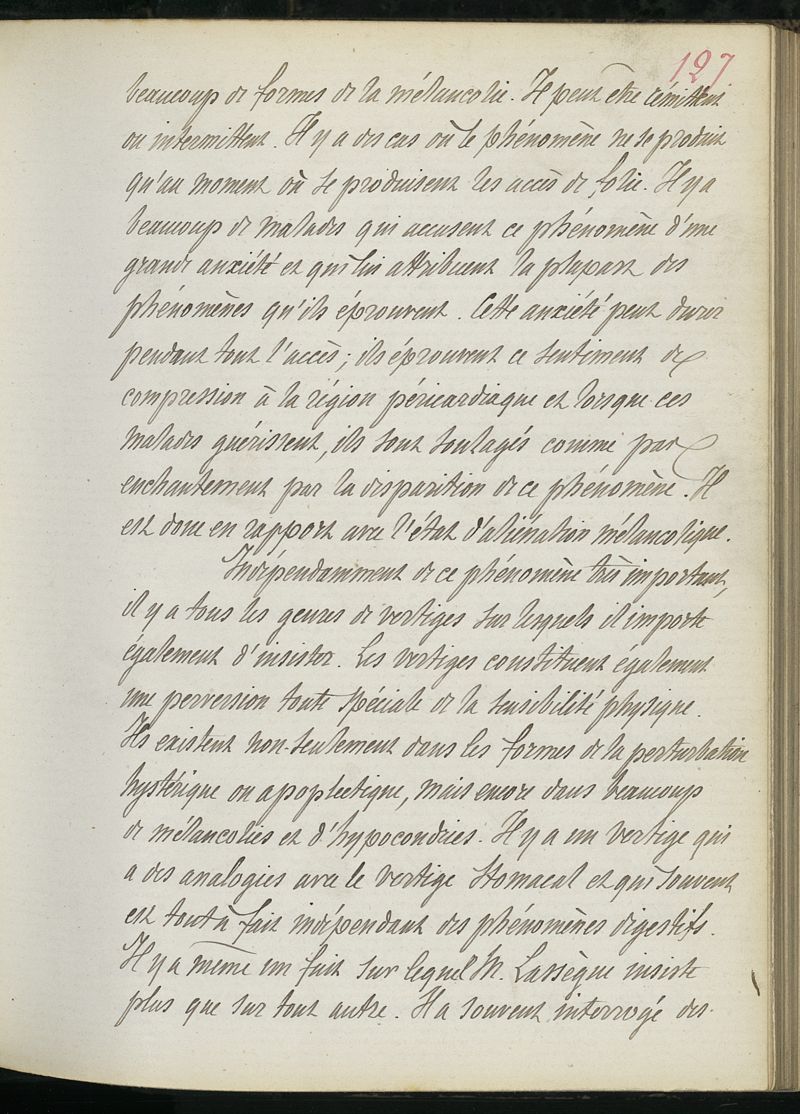 127
beaucoup de formes de la mélancolie. Il peut être rémittent
ou intermittent. Il y a des cas où le phénomène ne se produit
qu'au moment où se produisent les accès de folie. Il y a
beaucoup de malades qui accusent ce phénomène d'une
grande anxiété et qui lui attribuent la plupart des
phénomènes qu'ils éprouvent. Cette anxiété peut durer
pendant tout l'accès; ils éprouvent ce sentiment de
compression à la région péricardiaque et lorsque ces
malades guérissent, ils sont soulagés comme par
enchantement par la disparition de ce phénomène. Il
est donc en rapport avec l'état d'aliénation mélancolique.
Indépendamment de ce phénomène très important,
il y a tous les genres de vertiges sur lesquels il importe
également d'insister. Les vertiges constituent également
une perversion toute spéciale de la sensibilité physique.
Ils existent non-seulement dans les formes de la perturbation
hystérique ou apoplectique, mais encore dans beaucoup
de mélancolies et d'hypocondries. Il y a un vertige qui
a des analogies avec le vertige stomacal et qui souvent
est tout à fait indépendant des phénomènes digestifs.
Il y a même un fait sur lequel M. Lassègue insiste
plus que sur tout autre. Il a souvent interrogé des